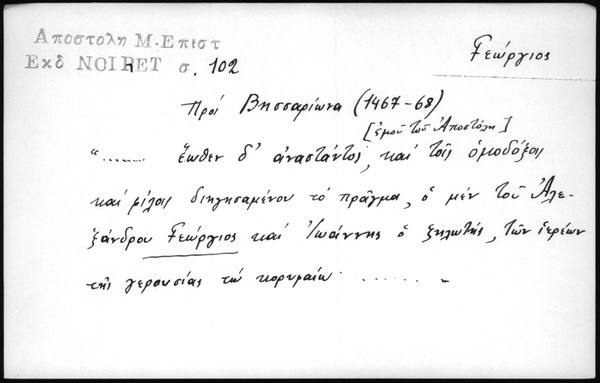 Αποστολη Μ. Επιστ
Γεώργιος
Εκδ NOIRET σ. 102
Πρός Βησσαρίωνα (1467-68)
[ἐμοῦ τοῦ Ἀποστόλη]
"....... ἕωθεν δ' ἀναστάντος, καί τοῖς ὁμοδόξοις
καί φίλοις διηγησαμένου τό πρᾶγμα, ὁ μέν τοῦ Ἀλε-
ξάνδρου Γεώργιος καί Ἰωάννης ὁ ζηλωτής, τῶν ἱερέων
τῆς γερουσίας τώ κορυφαίω ....... "